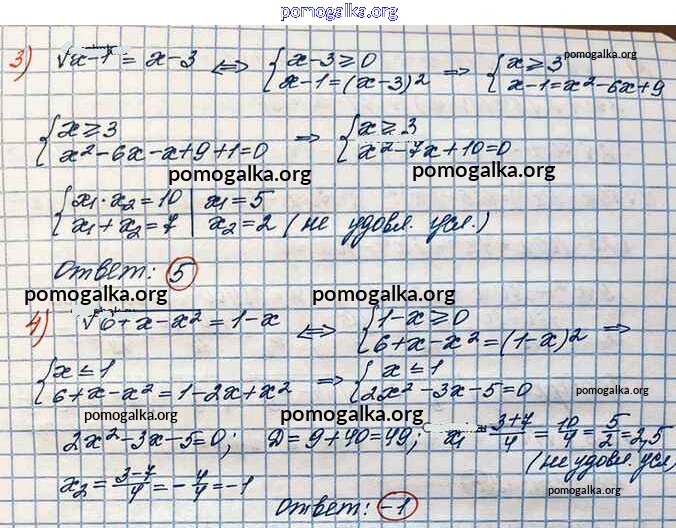 pomogalka.org
3) √x-1 = x-3 ⟺ { x-3≥0 x-1=(x-3)² ⟹ { x≥3 x-1=x²-6x+9
pomogalka.org
pomogalka.org
{ x≥3 x²-6x-x+9+1=0 ⟹ { x≥3 x²-7x+10=0
pomogalka.org pomogalka.org
{ x₁·x₂=10 x₁+x₂=7 | x₁=5 x₂=2 (не удовл. усл.)
Ответ: 5
pomogalka.org pomogalka.org
4) √6+x-x² = 1-x ⟺ { 1-x≥0 6+x-x²=(1-x)² ⟹
{ x≤1 6+x-x²=1-2x+x² ⟹ { x≤1 2x²-3x-5=0
pomogalka.org
pomogalka.org pomogalka.org
2x²-3x-5=0; D=9+40=49; x₁=3+7/4=10/4=5/2=2,5
(не удовл. усл)
x₂=3-7/4=-4/4=-1
pomogalka.org
Ответ: -1
pomogalka.org